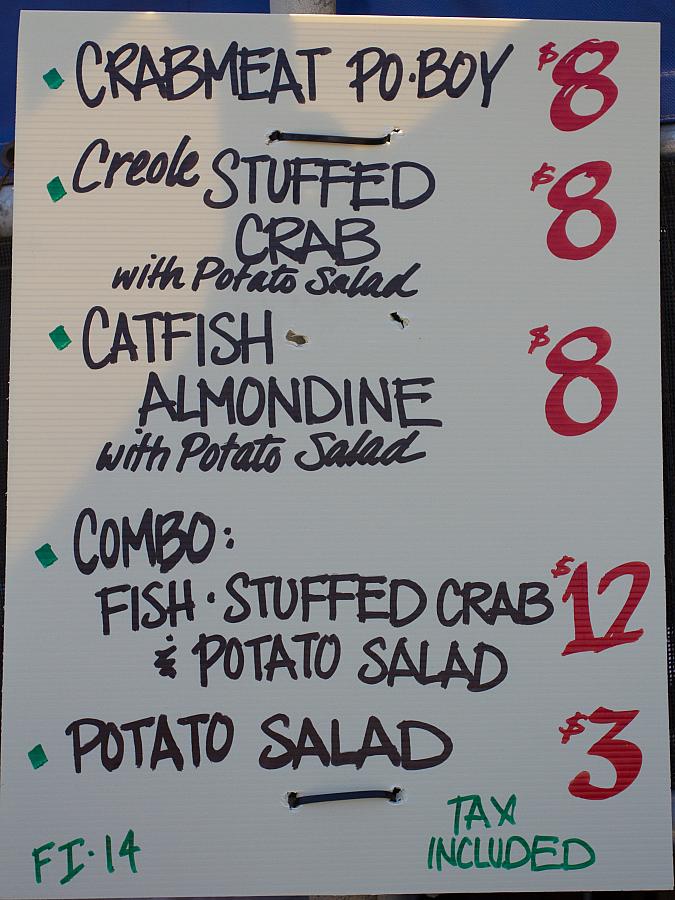 CRABMEAT PO·BOY $8
Creole STUFFED $8
CRAB
with Potato Salad
CATFISH $8
ALMONDINE
with Potato Salad
COMBO:
FISH · STUFFED CRAB $12
& POTATO SALAD
POTATO SALAD $3
TAX
INCLUDED
FI·14